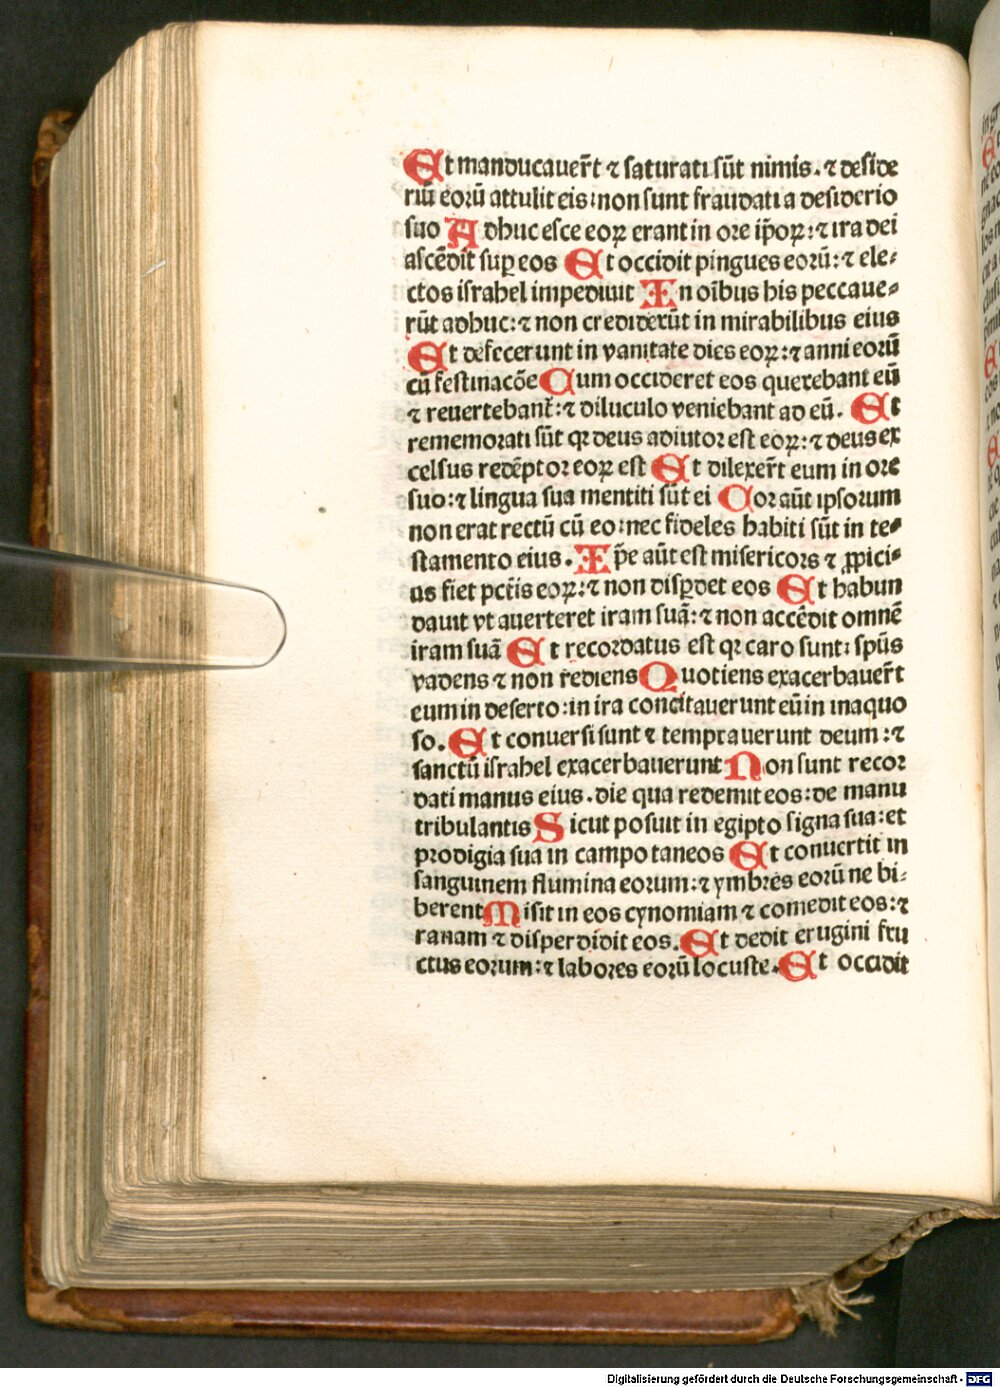 Et manducauer̄t ⁊ saturati sūt nimis. ⁊ deside
riū eorū attulit eis: non sunt fraudati a desiderio
suo Adhuc esce eoꝝ erant in ore ip̄oꝝ: ⁊ ira dei
ascēdit suꝑ eos Et occidit pingues eorū: ⁊ ele⸗
ctos israhel impediuit In oībus his peccaue⸗
rūt adhuc: ⁊ non crediderūt in mirabilibus eius
Et defecerunt in vanitate dies eoꝝ: ⁊ anni eorū
cū festinacōe Cum occideret eos querebant eū
⁊ reuertebant̄: ⁊ diluculo veniebant ad eū. Et
rememorati sūt qꝛ deus adiutor est eoꝝ: ⁊ deus ex
celsus redēptor eoꝝ est Et dilexer̄t eum in ore
suo: ⁊ lingua sua mentiti sūt ei Cor aūt ipsorum
non erat rectū cū eo: nec fideles habiti sūt in te⸗
stamento eius. Ip̄e aūt est misericors ⁊ ꝓpici⸗
us fiet pct̄is eoꝝ: ⁊ non disꝑdet eos Et habun
dauit vt auerteret iram suā: ⁊ non accēdit omnē
iram suā Et recordatus est qꝛ caro sunt: spūs
vadens ⁊ non rediens Quotiens exacerbauer̄t
eum in deserto: in ira concitauerunt eū in inaquo
so. Et conuersi sunt ⁊ temptauerunt deum: ⁊
sanctū israhel exacerbauerunt Non sunt recor
dati manus eius. die qua redemit eos: de manu
tribulantis Sicut posuit in egipto signa sua: et
prodigia sua in campo taneos Et conuertit in
sanguinem flumina eorum: ⁊ ymbres eorū ne bi⸗
berent Misit in eos cynomiam ⁊ comedit eos: ⁊
ranam ⁊ disperdidit eos. Et dedit erugini fru
ctus eorum: ⁊ labores eorū locuste. Et occidit
Digitalisierung gefördert durch die Deutsche Forschungsgemeinschaft - DFG